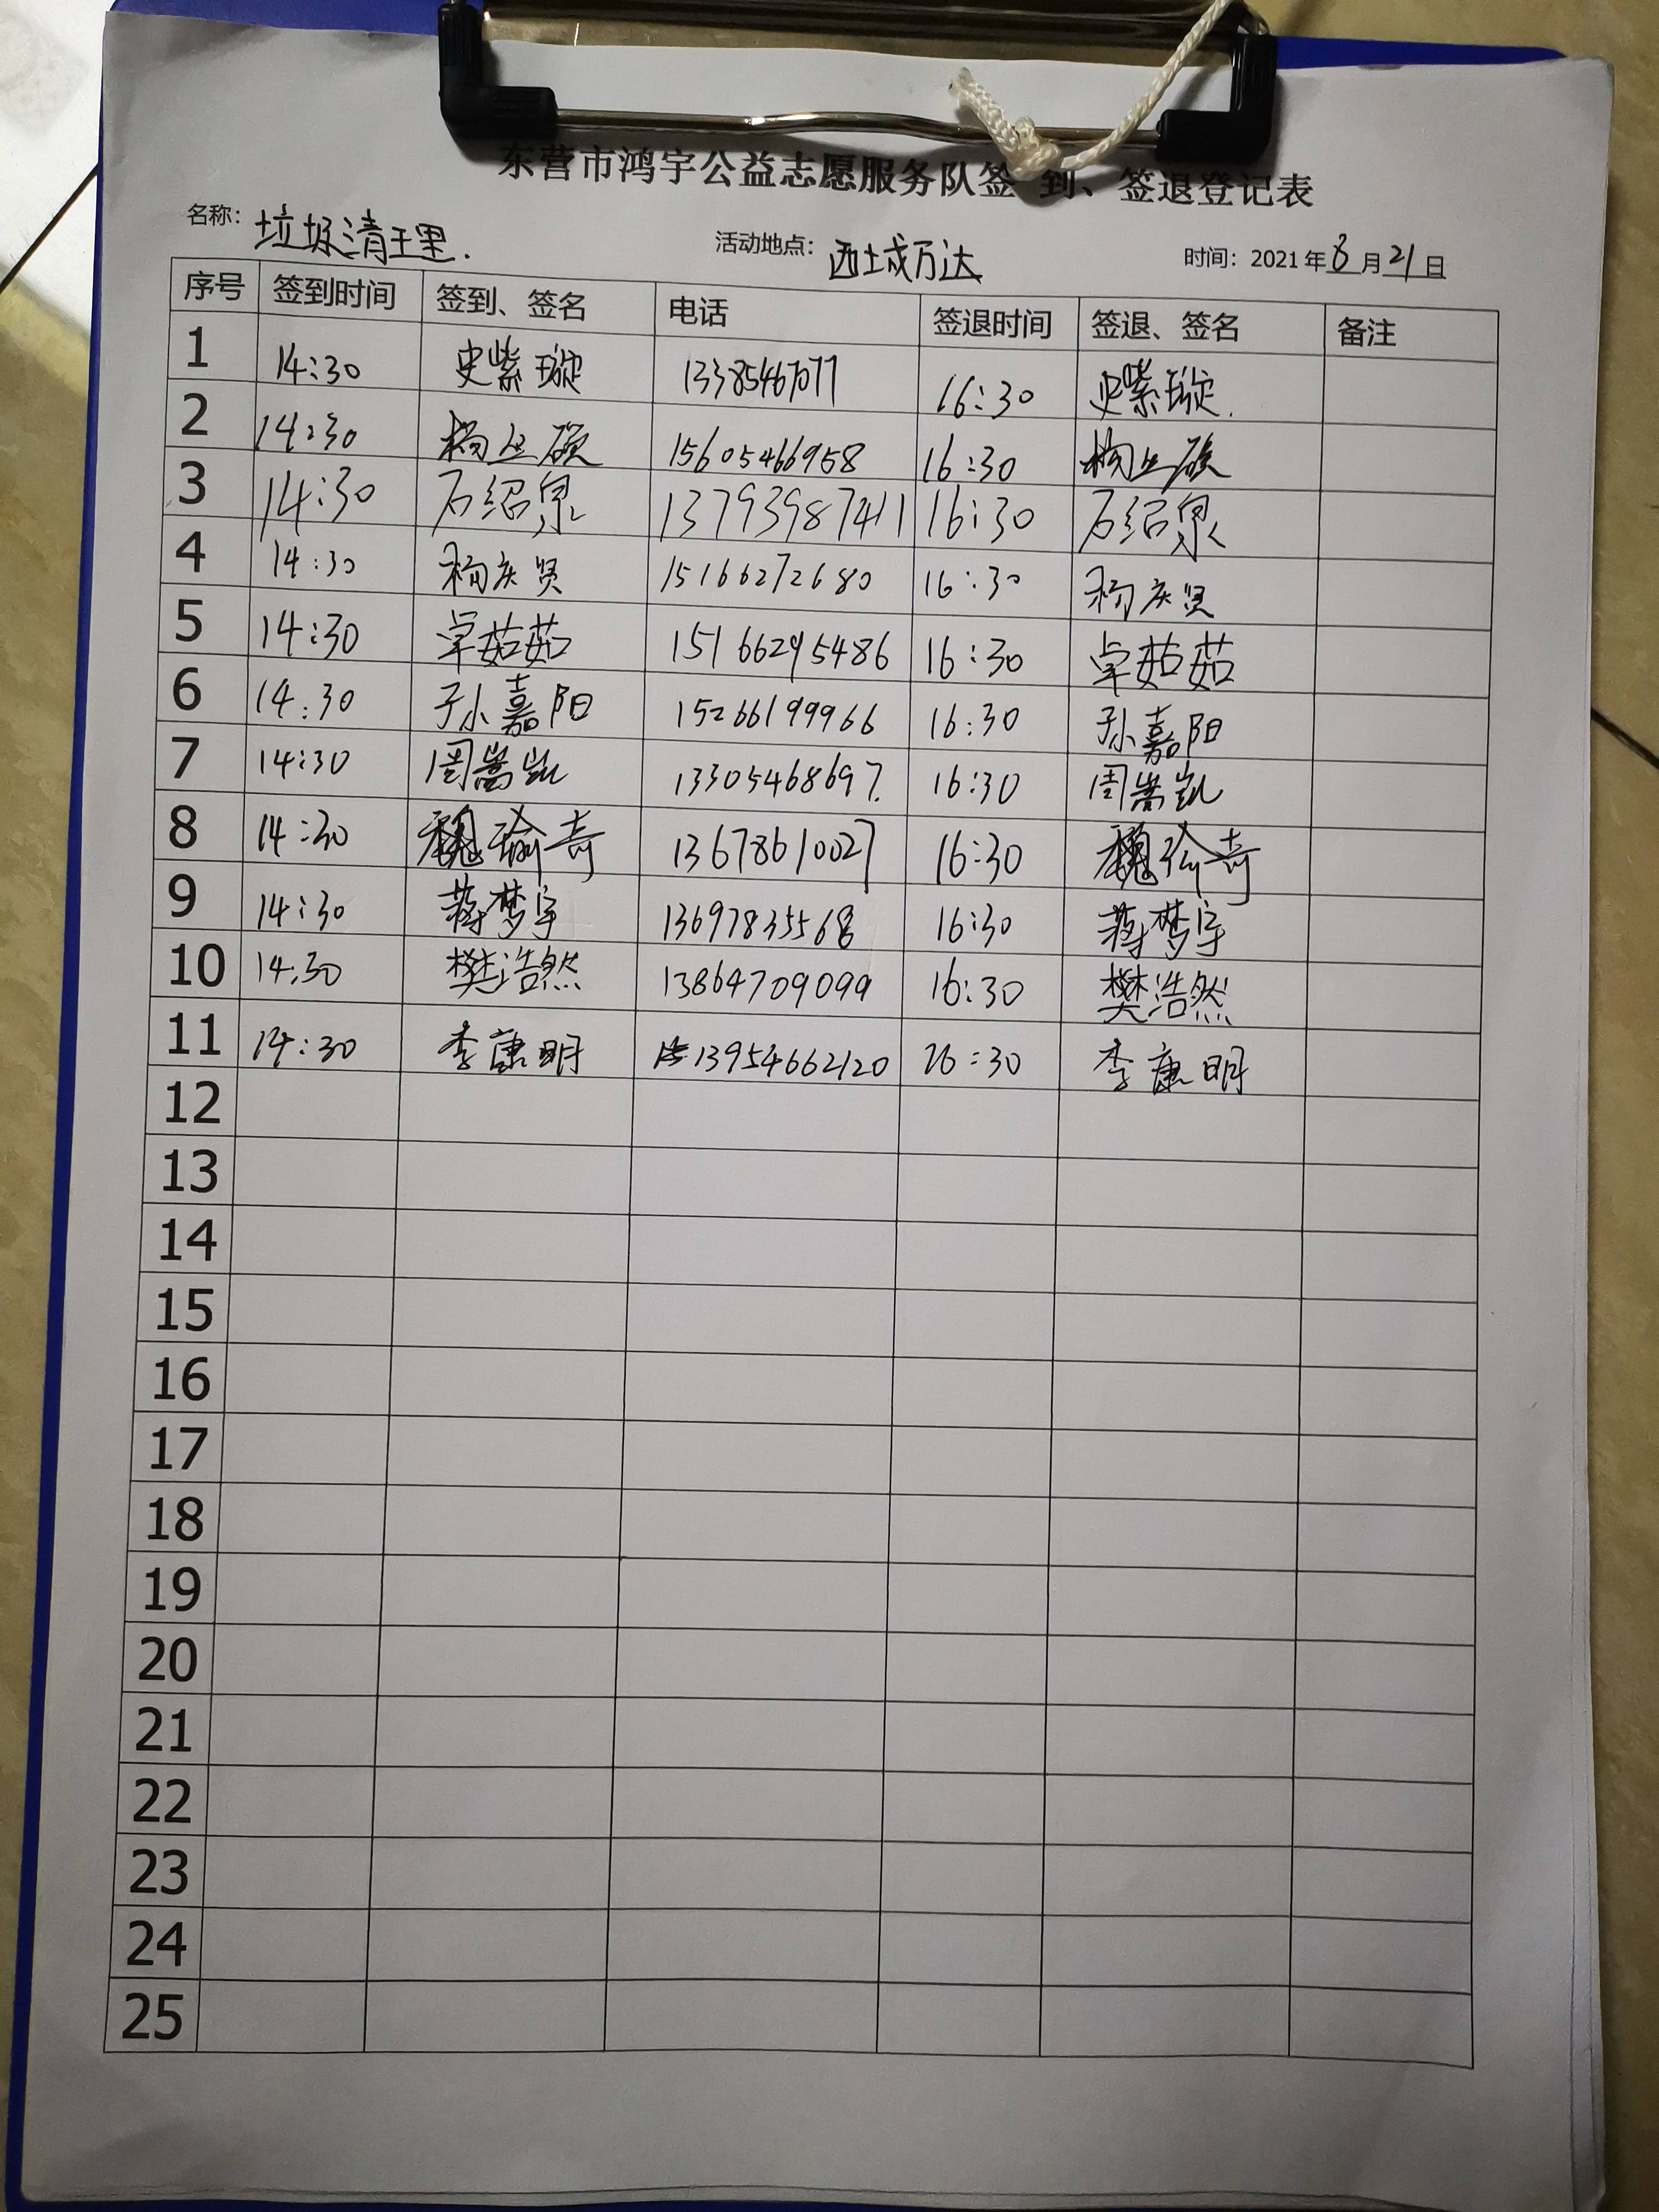 东营市鸿宇公益志愿服务队签 到、签退登记表
名称：垃圾清理. 活动地点：西城万达 时间：2021年8月21日
序号 签到时间 签到、签名 电话 签退时间 签退、签名 备注
1 14:30 史紫璇 13385467077 16:30 史紫璇.
2 14:30 杨丛硕 15605466958 16:30 杨丛硕
3 14:30 石绍泉 13793987411 16:30 石绍泉
4 14:30 杨庆贤 15166272680 16:30 杨庆贤
5 14:30 卓茹茹 15166295486 16:30 卓茹茹
6 14:30 孙嘉阳 15266199966 16:30 孙嘉阳
7 14:30 周嵩凯 13305468697. 16:30 周嵩凯
8 14:30 魏瑜奇 13678610027 16:30 魏瑜奇
9 14:30 蒋梦宇 13697835568 16:30 蒋梦宇
10 14:30 樊浩然 13864709099 16:30 樊浩然
11 14:30 李康明 13954662120 16:30 李康明
12
13
14
15
16
17
18
19
20
21
22
23
24
25